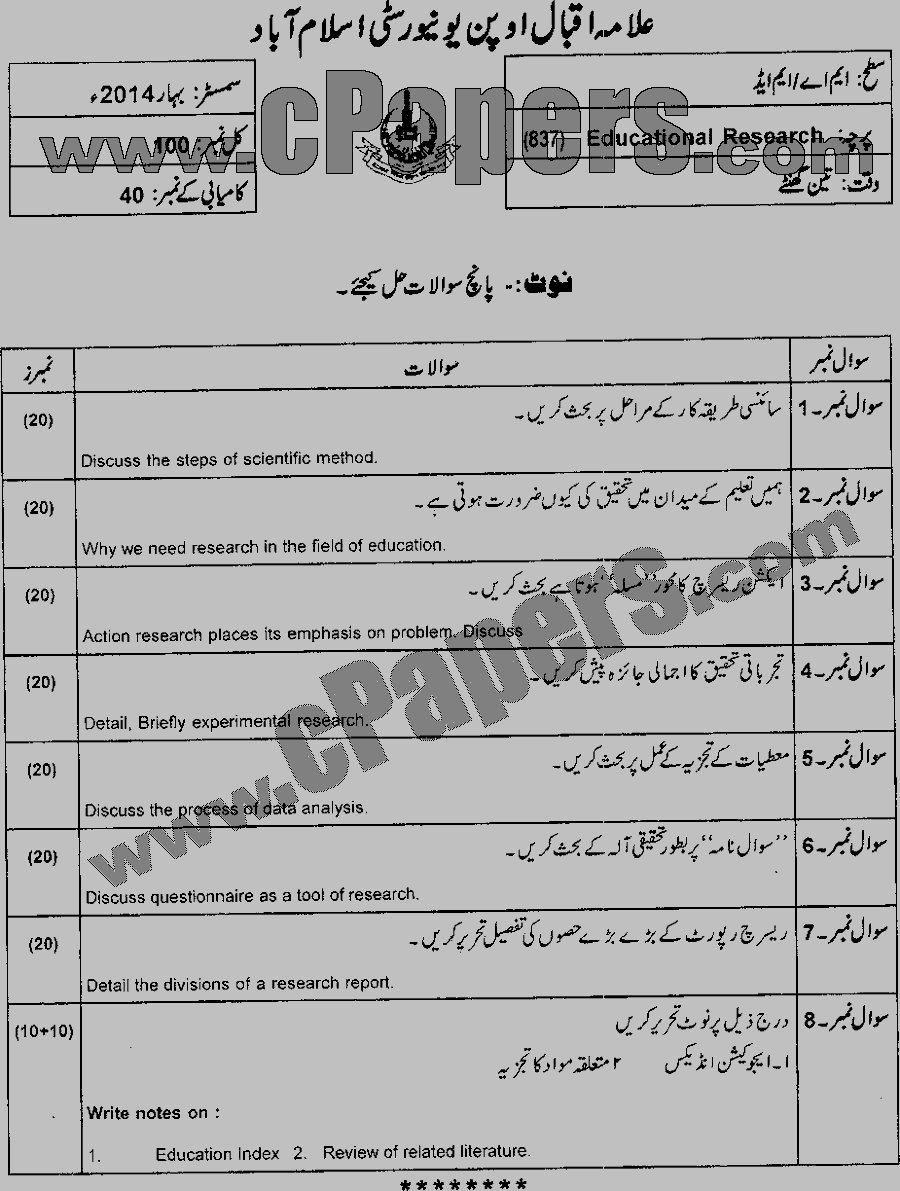 علامہ اقبال اوپن یونیورسٹی اسلام آباد
سطح: ایم اے/ایم ایڈ
سمسٹر: بہار 2014ء
پرچہ: Educational Research (837)
کل نمبر: 100
وقت: تین گھنٹے
کامیابی کے نمبر: 40
www.cPapers.com
نوٹ:- پانچ سوالات حل کیجئے۔
سوال نمبر سوالات نمبرز
سوال نمبر۔1 سائنسی طریقہ کار کے مراحل پر بحث کریں۔ (20)
Discuss the steps of scientific method.
سوال نمبر۔2 ہمیں تعلیم کے میدان میں تحقیق کی کیوں ضرورت ہوتی ہے۔ (20)
Why we need research in the field of education.
سوال نمبر۔3 ایکشن ریسرچ کا محور ”مسلہ“ ہوتا ہے بحث کریں۔ (20)
Action research places its emphasis on problem. Discuss
سوال نمبر۔4 تجرباتی تحقیق کا اجمالی جائزہ پیش کریں۔ (20)
Detail, Briefly experimental research.
سوال نمبر۔5 معطیات کے تجزیہ کے عمل پر بحث کریں۔ (20)
Discuss the process of data analysis.
سوال نمبر۔6 ”سوال نامہ“ پر بطور تحقیقی آلہ کے بحث کریں۔ (20)
Discuss questionnaire as a tool of research.
سوال نمبر۔7 ریسرچ رپورٹ کے بڑے بڑے حصوں کی تفصیل تحریر کریں۔ (20)
Detail the divisions of a research report.
سوال نمبر۔8 درج ذیل پر نوٹ تحریر کریں (10+10)
۱۔ایجوکیشن انڈیکس ۲ متعلقہ مواد کا تجزیہ
Write notes on :
1. Education Index 2. Review of related literature.
********
www.cPapers.com